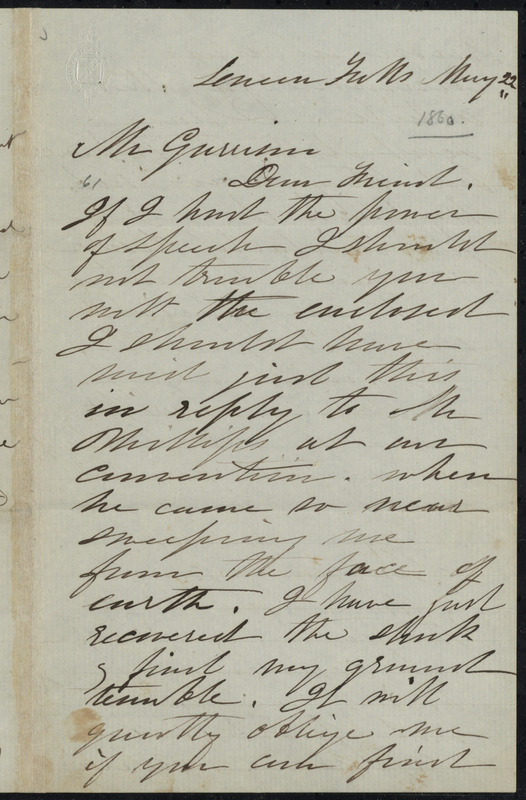 Seneca Falls May 22
1860.
Mr Garrison
61
Dear Friend.
If I had the power
of speech I should
not trouble you
with the enclosed
I should have
said just this
in reply to Mr
Phillips at our
convention. when
he came so near
sweeping me
from the face of
earth. I have just
recovered the shock
& find my ground
tenable. It will
greatly oblige me
if you can find